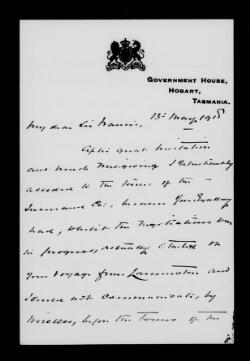 GOVERNMENT HOUSE,
HOBART,
TASMANIA.
13th May 1918
My dear Sir Francis,
After great hesitation
and much misgiving I reluctantly
acceded to the terms of the
Insurance Co:, because Your Excellency
had, whilst the negotiations were
in progress, actually started on
your voyage from Launceston and
joined with communicate, by
wireless, before the terms of the